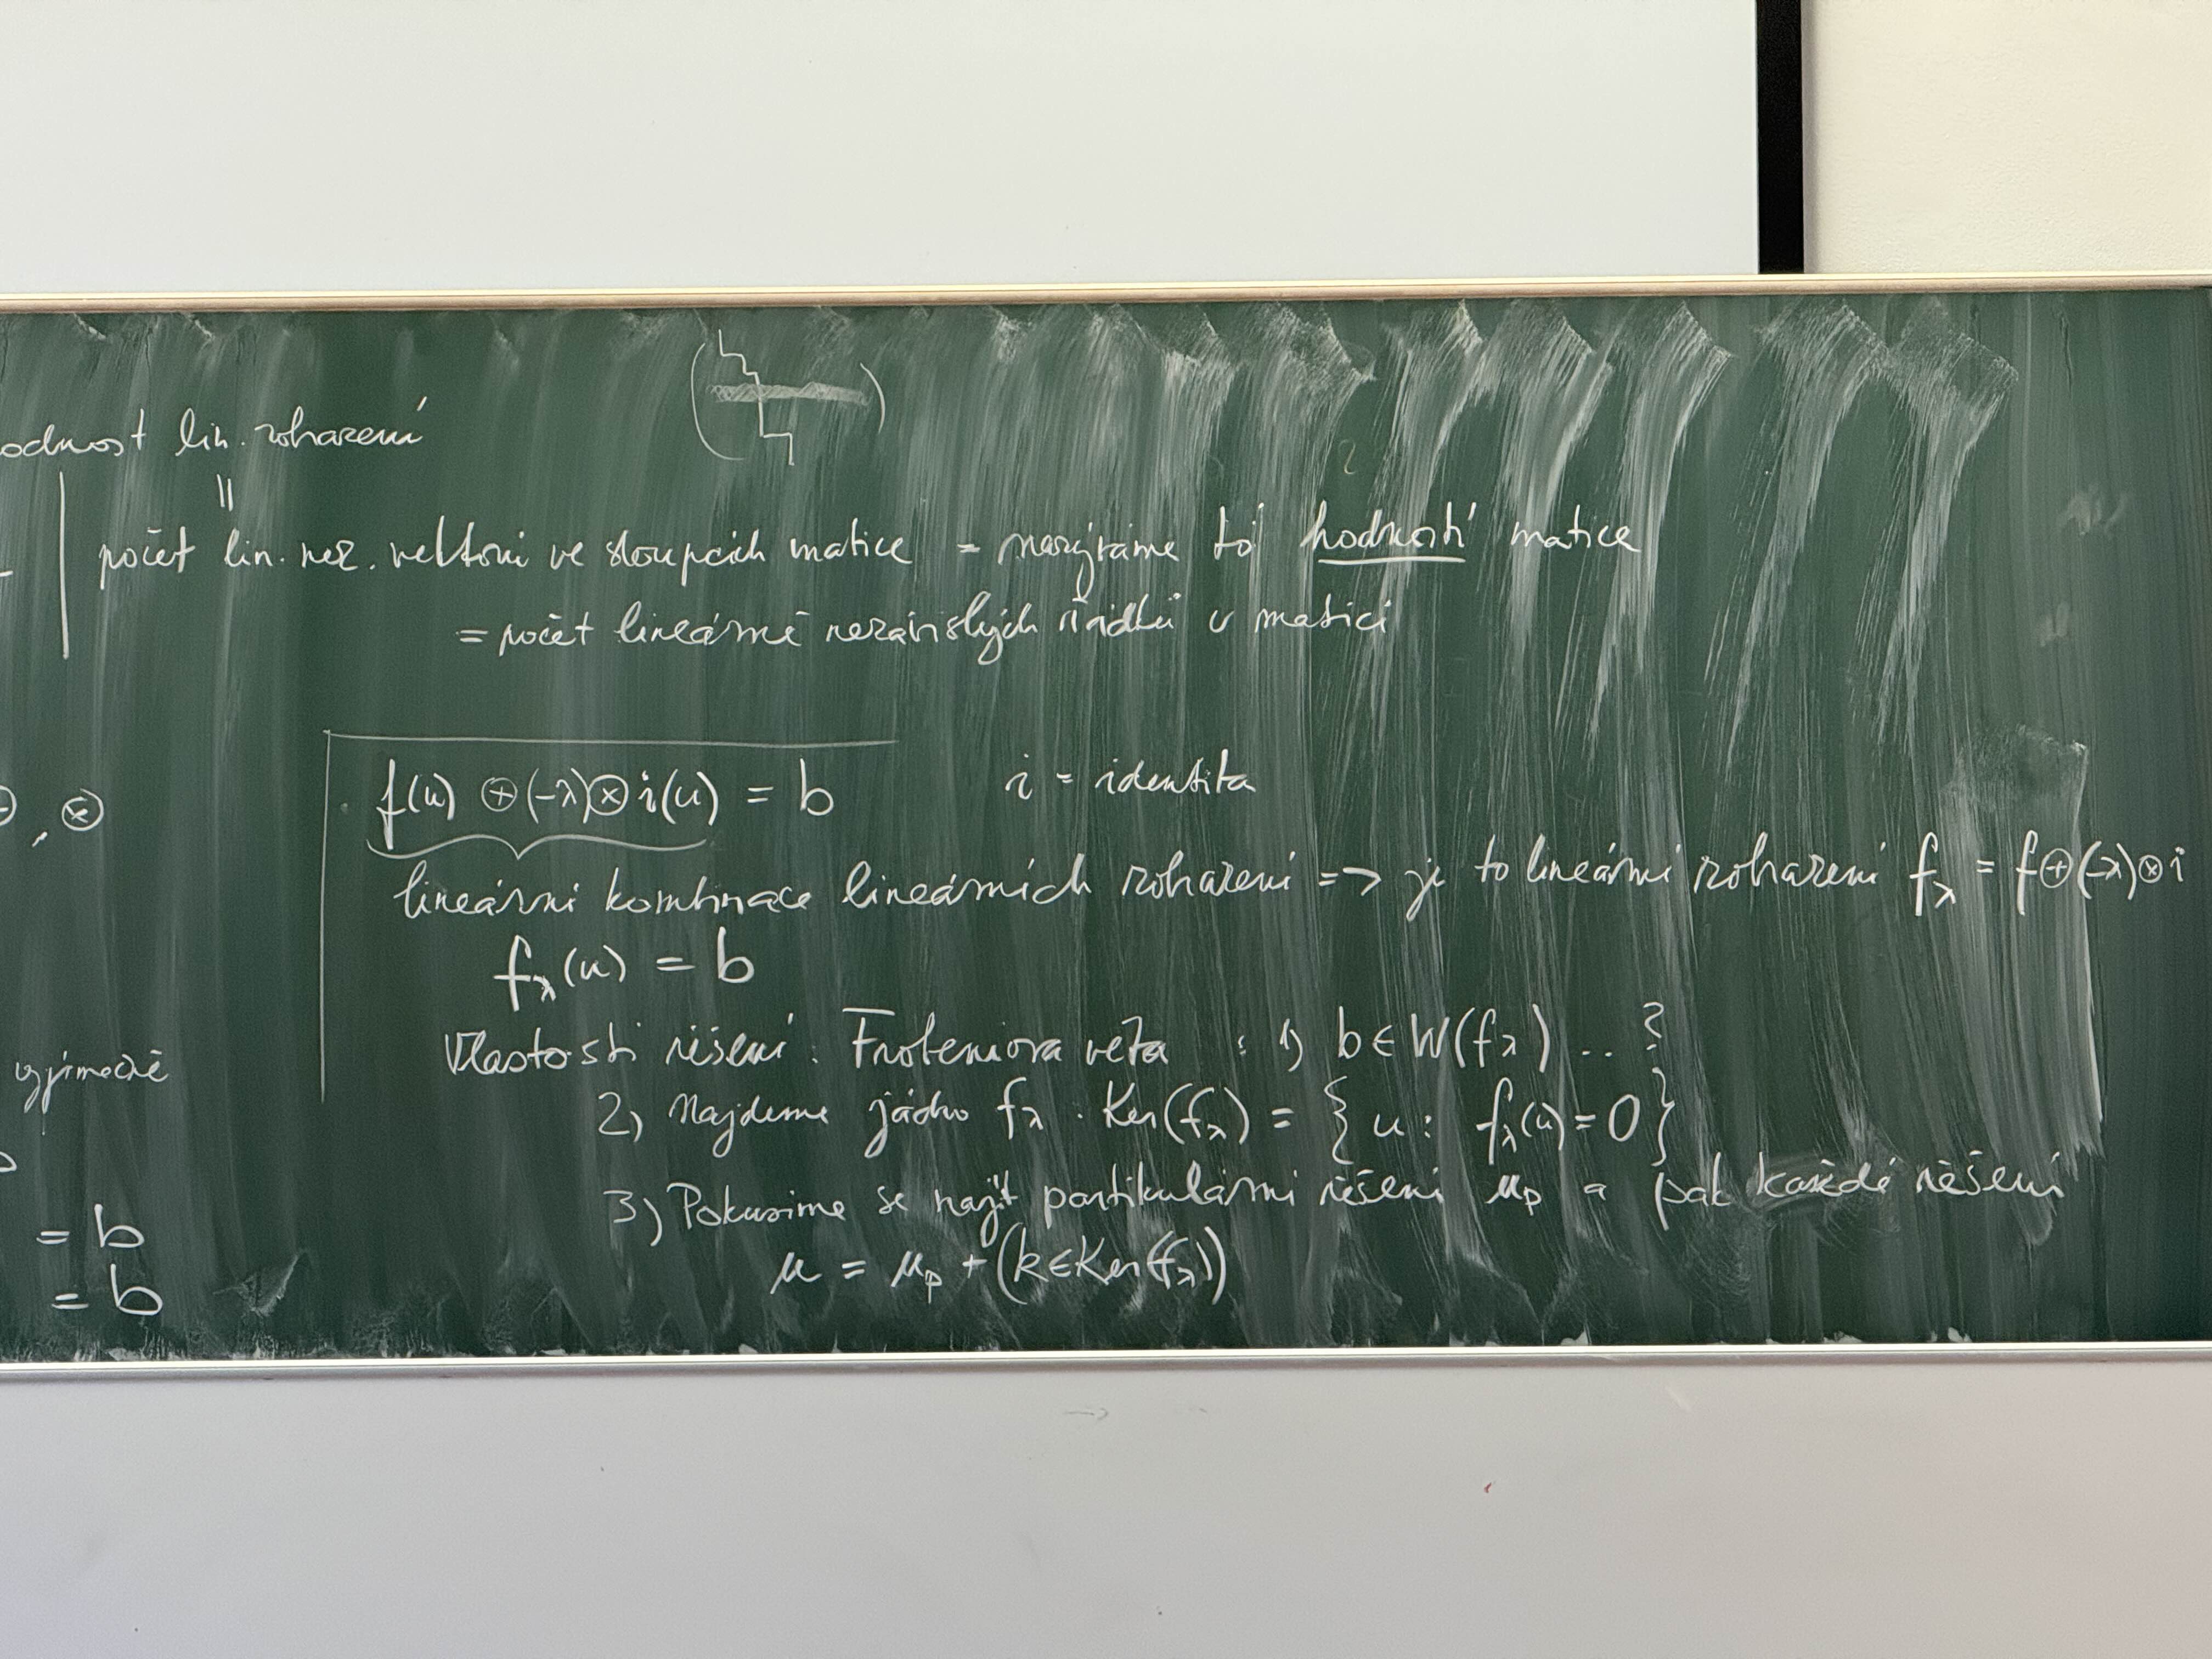 odnost lin. zobrazení
||
počet lin. nez. vektorů ve sloupcích matice = nazýváme to hodností matice
= počet lineárně nezávislých řádků v matici
, ⊗
f(u) ⊕(-λ)⊗ i(u) = b i = identita
lineární kombinace lineárních zobrazení => je to lineární zobrazení fλ = f⊕(-λ)⊗i
fλ(u) = b
Vlastosti řešení: Frobeniova věta : 1) b∈W(fλ) .. ?
výjimečně
2) Najdeme jádro fλ. Ker(fλ) = { u : fλ(u)=0 }
3) Pokusíme se najít partikulární řešení up a pak každé řešení
= b
u = up + (k∈Ker(fλ))
= b